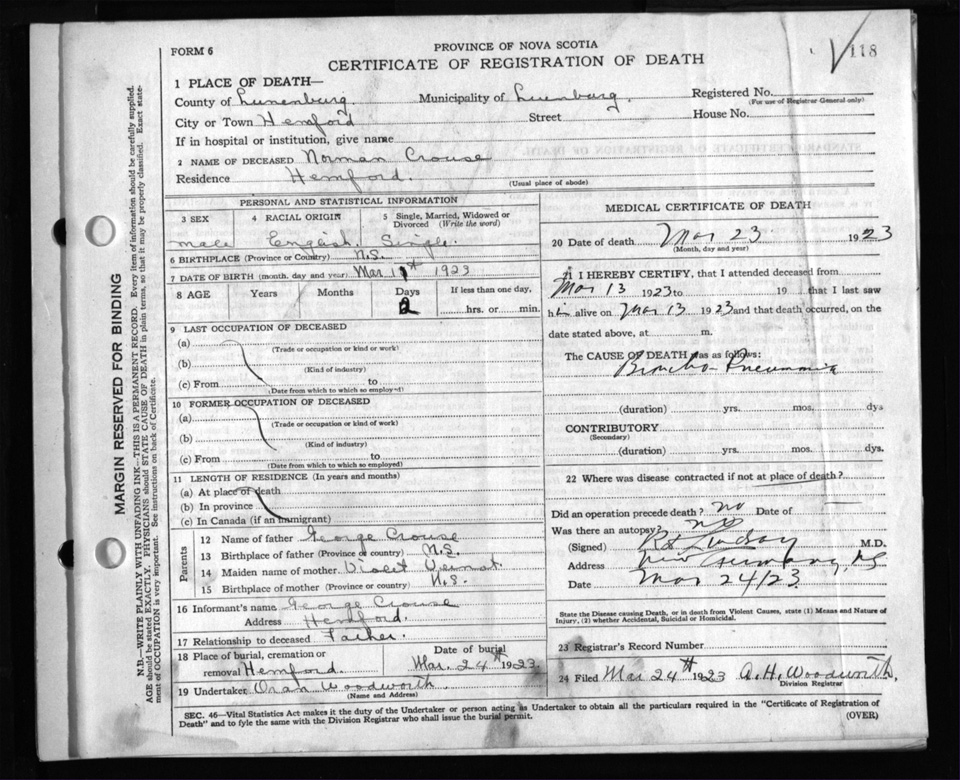 118
FORM 6
PROVINCE OF NOVA SCOTIA
CERTIFICATE OF REGISTRATION OF DEATH
1 PLACE OF DEATH—
County of Lunenburg. Municipality of Luenburg. Registered No.
(For use of Registrar General only)
City or Town Hemford Street House No.
If in hospital or institution, give name
2 NAME OF DECEASED Norman Crouse
Residence Hemford.
(Usual place of abode)
PERSONAL AND STATISTICAL INFORMATION
3 SEX 4 RACIAL ORIGIN 5 Single, Married, Widowed or Divorced (Write the word)
male English. Single.
6 BIRTHPLACE (Province or Country) N.S.
7 DATE OF BIRTH (month, day and year) Mar 1st 1923
8 AGE Years Months Days If less than one day,
2 hrs. or min.
9 LAST OCCUPATION OF DECEASED
(a)
(Trade or occupation or kind or work)
(b)
(Kind of industry)
(c) From to
(Date from which to which so employed)
10 FORMER OCCUPATION OF DECEASED
(a)
(Trade or occupation or kind of work)
(b)
(Kind of industry)
(c) From to
(Date from which to which so employed)
11 LENGTH OF RESIDENCE (In years and months)
(a) At place of death
(b) In province
(c) In Canada (if an immigrant)
Parents
12 Name of father George Crouse
13 Birthplace of father (Province or country) N.S.
14 Maiden name of mother Violet
15 Birthplace of mother (Province or country) N.S.
16 Informant's name George Crouse
Address Hemford.
17 Relationship to deceased Father.
18 Place of burial, cremation or removal Hemford. Date of burial Mar. 24th 1923.
19 Undertaker Oran Woodworth
(Name and Address)
MEDICAL CERTIFICATE OF DEATH
20 Date of death Mar 23 1923
(Month, day and year)
21 I HEREBY CERTIFY, that I attended deceased from
Mar 13 1923 to 19 that I last saw
him alive on Mar 13 1923 and that death occurred, on the
date stated above, at m.
The CAUSE OF DEATH was as follows:
Broncho-Pneumonia
(duration) yrs. mos. dys
CONTRIBUTORY
(Secondary)
(duration) yrs. mos. dys.
22 Where was disease contracted if not at place of death?
Did an operation precede death? no Date of
Was there an autopsy? no
(Signed) Lindsay M.D.
Address New Germany, NS
Date Mar 24/23
State the Disease causing Death, or in death from Violent Causes, state (1) Means and Nature of
Injury, (2) whether Accidental, Suicidal or Homicidal.
23 Registrar's Record Number
24 Filed Mar 24th 1923 A. H. Woodworth,
Division Registrar
SEC. 46—Vital Statistics Act makes it the duty of the Undertaker or person acting as Undertaker to obtain all the particulars required in the "Certificate of Registration of
Death" and to fyle the same with the Division Registrar who shall issue the burial permit. (OVER)
MARGIN RESERVED FOR BINDING
N.B.—WRITE PLAINLY WITH UNFADING INK—THIS IS A PERMANENT RECORD. Every item of information should be carefully supplied.
AGE should be stated EXACTLY. PHYSICIANS should STATE CAUSE OF DEATH in plain terms, so that it may be properly classified. Exact state-
ment of OCCUPATION is very important. See instructions on back of Certificate.